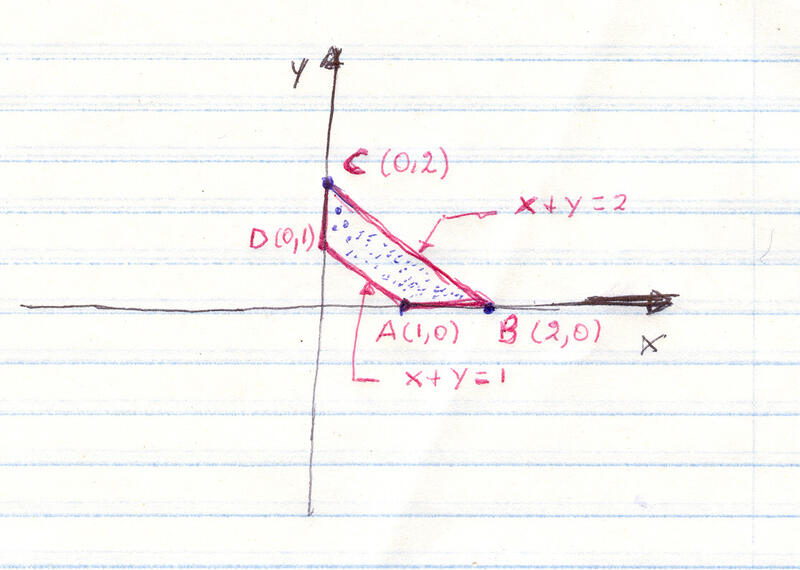 Y
C (0,2)
x+y=2
D(0,1)
A(1,0)
B(2,0)
X
x+y=1